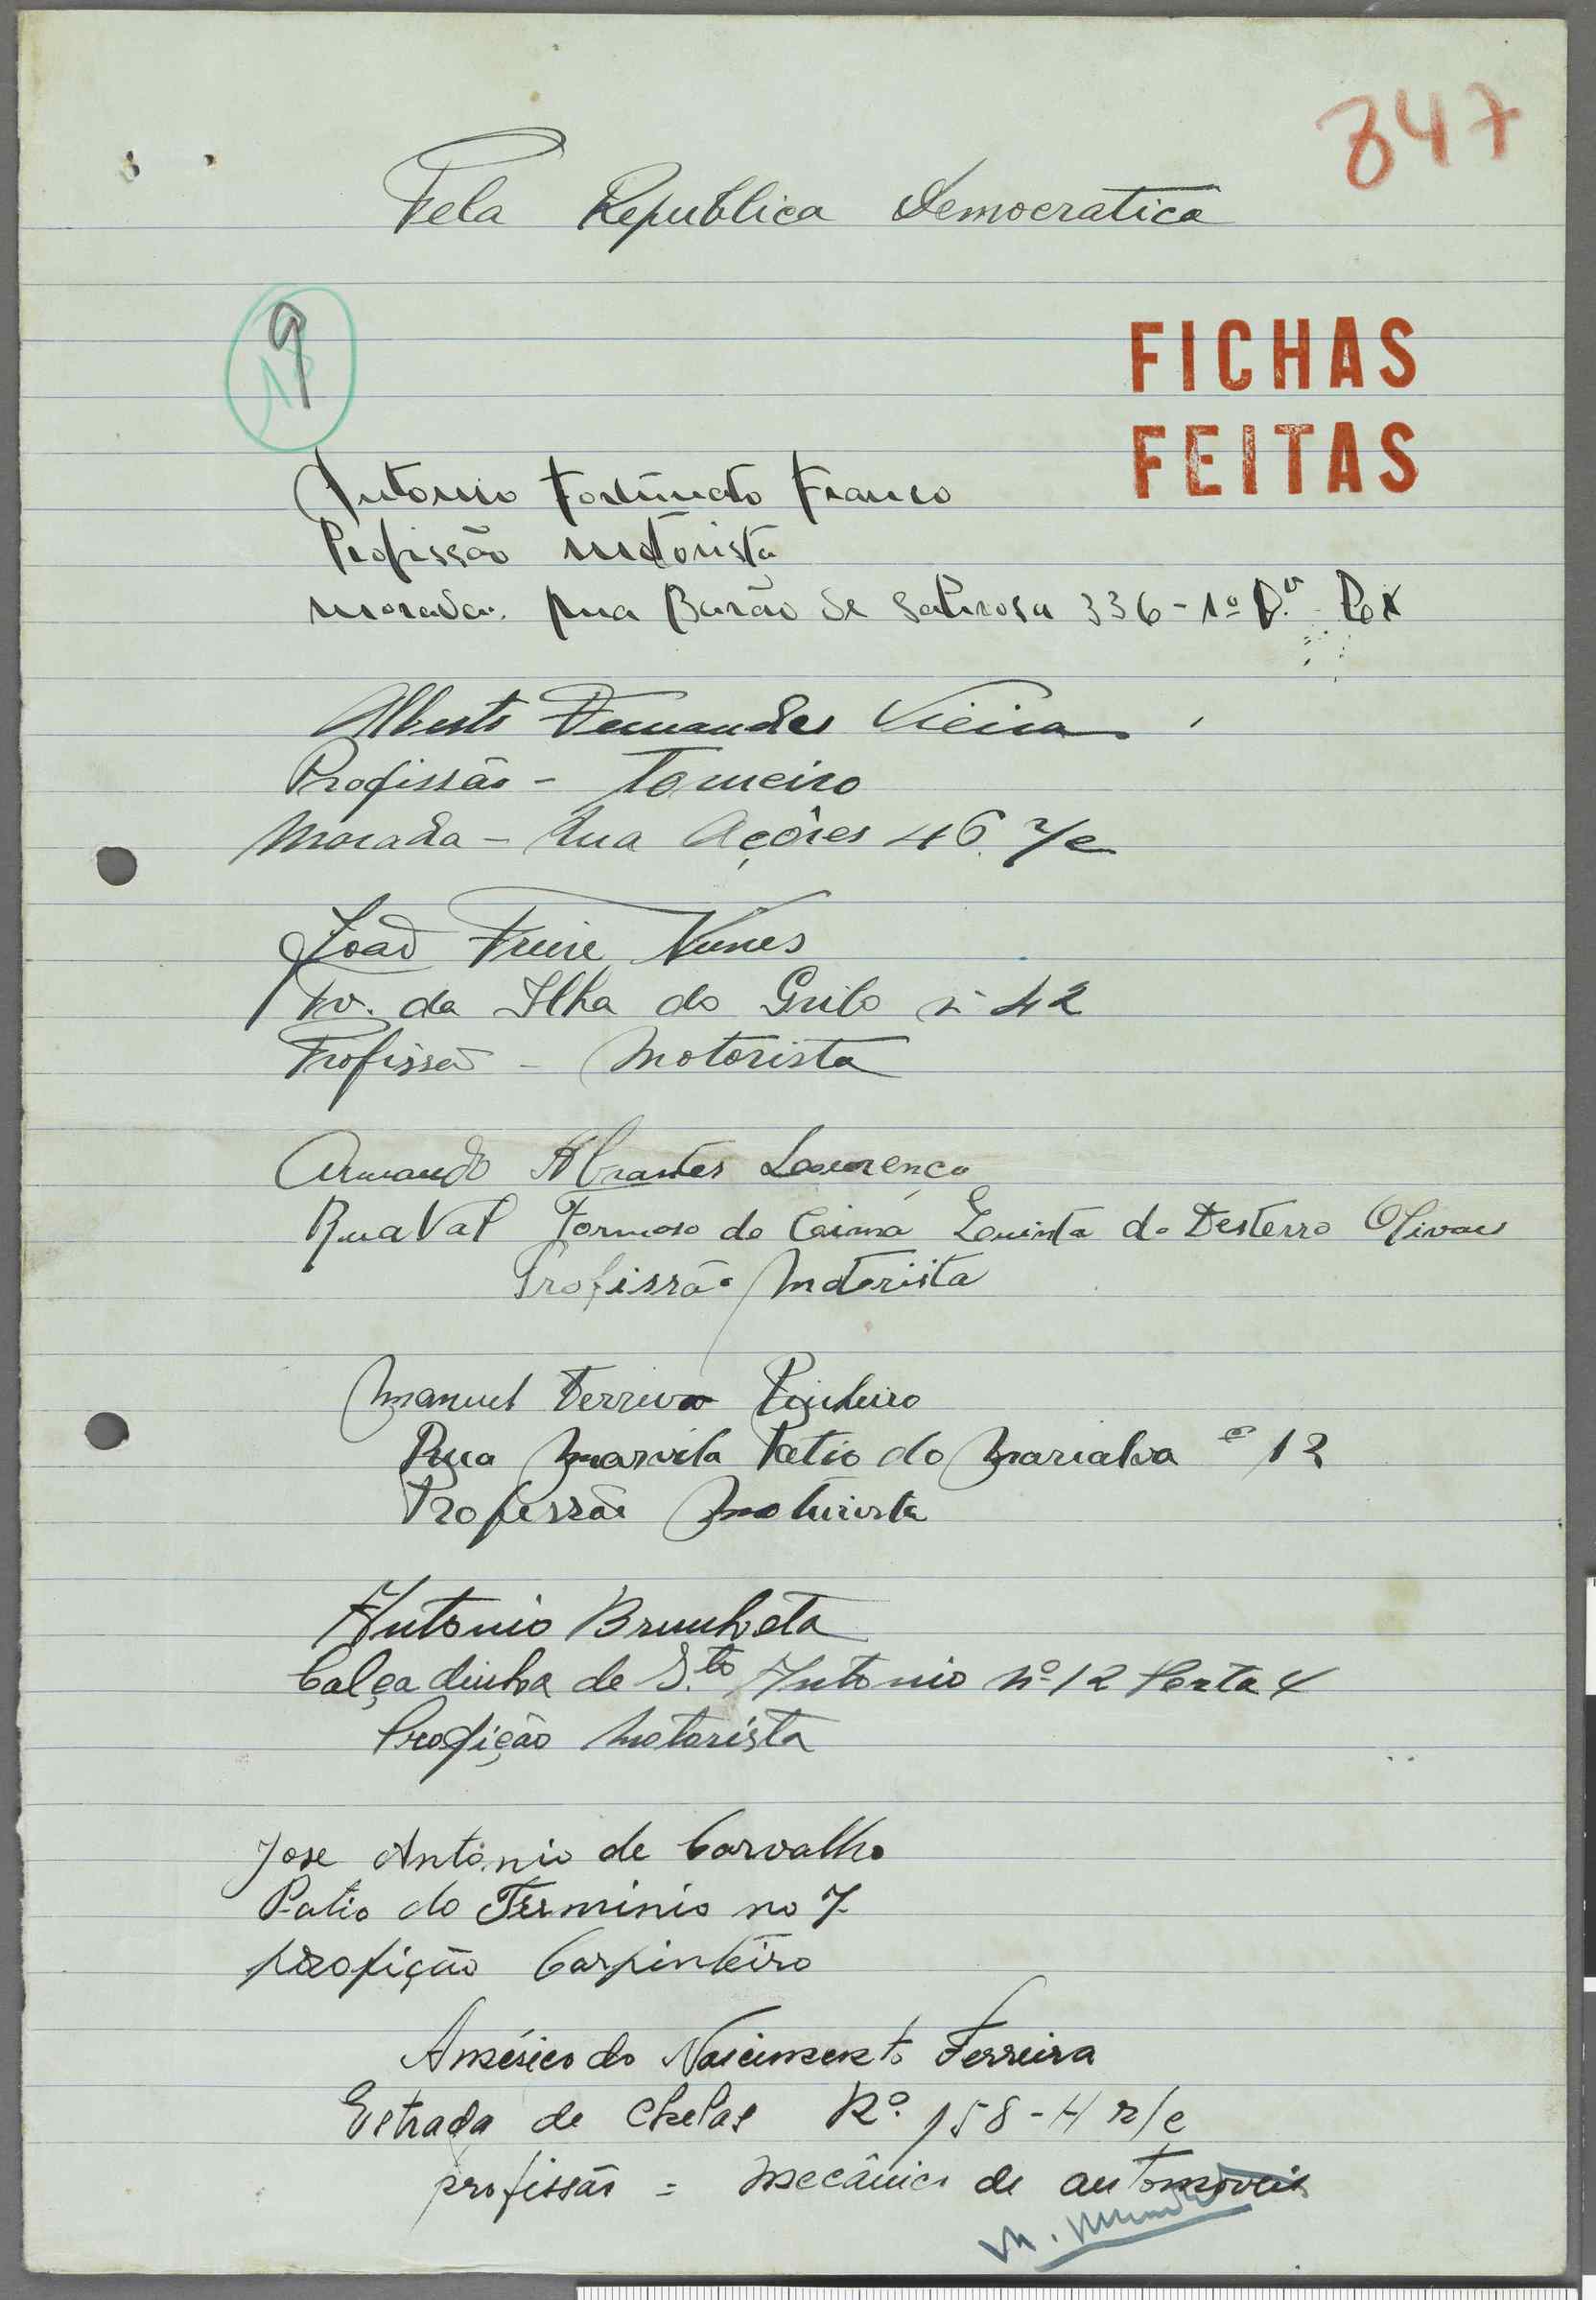 847
Pela Republica Democratica
9
FICHAS
FEITAS
Antonio Fortunato Franco
Profissão motorista
morada. Rua Barão de Sabrosa 336-1º D.to
Alberto Fernandes Vieira
Profissão - Torneiro
Morada - Rua Açôres 46 r/c
João Freire Nunes
Tv. da Ilha do Grilo nº 42
Profissão - Motorista
Armando Abrantes Lourenço
Rua Val Formoso de Cima Quinta do Desterro Olivais
Profissão Motorista
Manuel Ferreira Pinheiro
Rua Marvila Patio do Marialva 12
Profissão Motorista
Antonio Brunheta
Calçadinha de S.to Antonio nº 12 Porta 4
Profição Motorista
Jose António de Carvalho
Patio do Ferminio no 7
profição Carpinteiro
Américo do Nascimento Ferreira
Estrada de Chelas Nº. 158-H r/c
profissão = Mecânico de automoveis